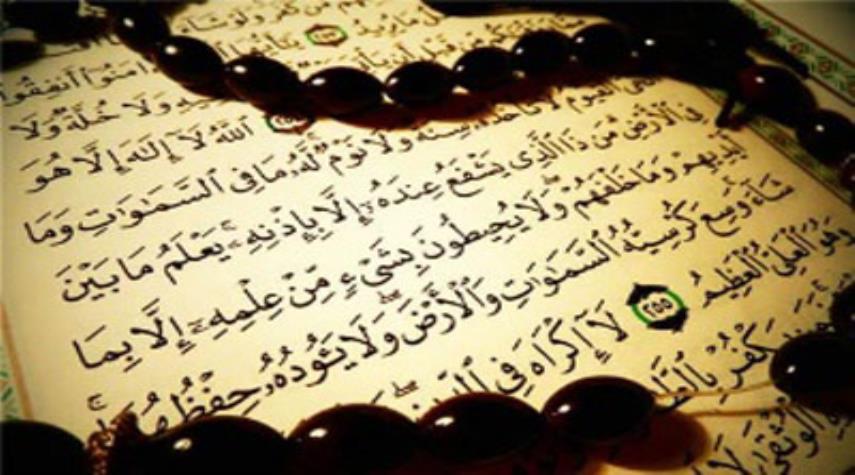 مَّن كَفَرَ وَلَوْ شَآءَ
مَا يُرِيدُ ٢٥٣ يَٰٓأَيُّهَا ءَامَنُوٓا۟ أَنفِقُوا۟
مِّن قَبْلِ أَن يَأْتِىَ فِيهِ وَلَا خُلَّةٌ وَلَا
٢٥٤ ٱللَّهُ لَآ إِلَٰهَ إِلَّا هُوَ
ٱلْقَيُّومُ لَا تَأْخُذُهُۥ سِنَةٌ وَلَا نَوْمٌ لَّهُۥ مَا فِى ٱلسَّمَٰوَٰتِ وَمَا
فِى ٱلْأَرْضِ مَن ذَا ٱلَّذِى يَشْفَعُ عِندَهُۥٓ إِلَّا بِإِذْنِهِۦ ۚ يَعْلَمُ مَا بَيْنَ
أَيْدِيهِمْ وَمَا خَلْفَهُمْ ۖ وَلَا يُحِيطُونَ بِشَىْءٍ مِّنْ عِلْمِهِۦٓ إِلَّا بِمَا
شَآءَ ۚ وَسِعَ كُرْسِيُّهُ ٱلسَّمَٰوَٰتِ وَٱلْأَرْضَ ۖ وَلَا يَـُٔودُهُۥ حِفْظُهُمَا ۚ
وَهُوَ ٱلْعَلِىُّ ٱلْعَظِيمُ ٢٥٥ لَآ إِكْرَاهَ فِى ٱلدِّينِ ۖ
يَكْفُرْ
ٱلْوُثْقَىٰ لَا